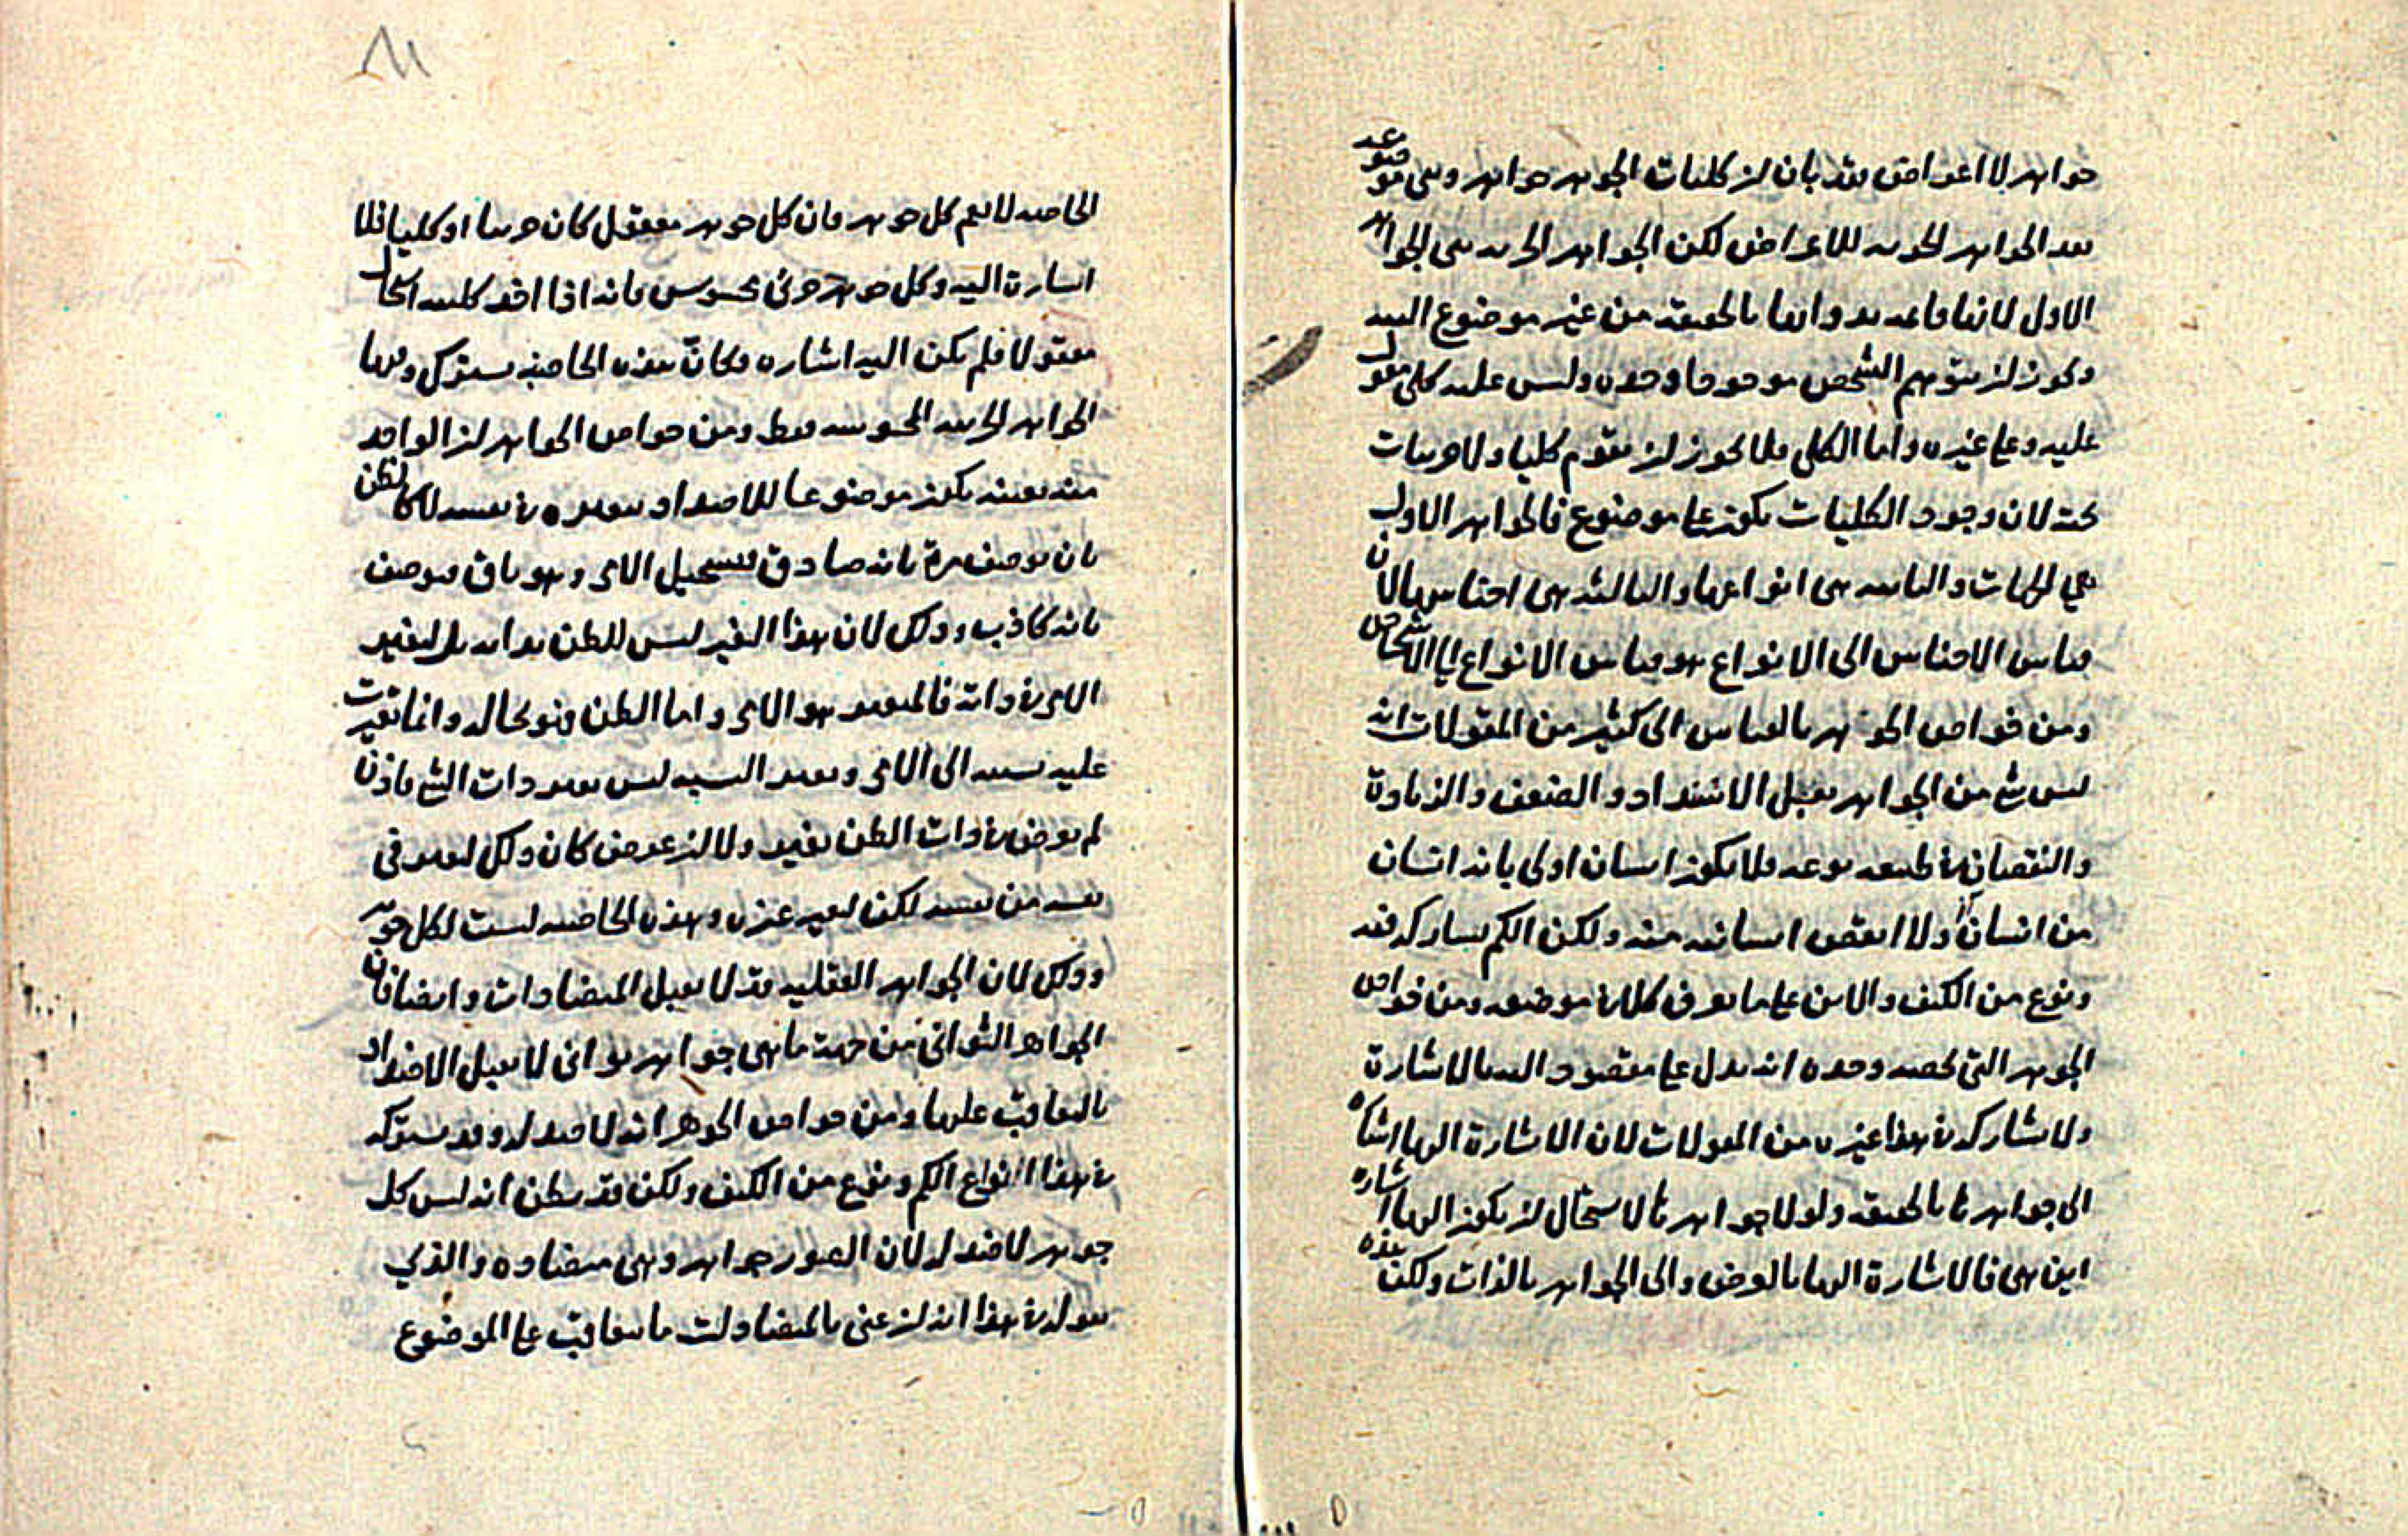 جواهر لا اعراض فقد بان ان كليات الجوهر جواهر وهى موضوعة
بعد الجواهر الجزئية للاعراض لكن الجواهر الجزئية هى الجواهر
الاول لانها قائمة بذواتها بالحقيقة من غير موضوع البتة
ويجوز ان يتوهم الشخص موجودا وحده وليس عليه كلى مقول
عليه وعلى غيره واما الكلى فلا يجوز ان يقوم كليا ولا جزئيات
تحته لان وجود الكليات يكون على موضوع فالجواهر الاول
هى الجزئيات والثانية هى انواعها والثالثة هى اجناسها لان
قياس الاجناس الى الانواع هو قياس الانواع الى الاشخاص
ومن خواص الجوهر بالقياس الى كثير من المقولات انه
ليس شئ من الجواهر يقبل الاشتداد والضعف والزيادة
والنقصان فى طبيعة نوعه فلا يكون انسان اولى بانه انسان
من انسان ولا انقص انسانية منه ولكن الكم يشاركه فيه
ونوع من الكيف والاين على ما يعرف كلا فى موضعه ومن خواص
الجوهر التى تخصه وحده انه يدل على مقصود اليه بالاشارة
ولا يشاركه فى هذا غيره من المقولات لان الاشارة اليها اشارة
الى جواهرها بالحقيقة ولولا جواهرها لاستحال ان يكون اليها اشارة
اين هى فالاشارة اليها بالعرض والى الجواهر بالذات ولكن هذه
٨١
الخاصة لا تعم كل جوهر فان كل جوهر معقول كان جزئيا او كليا فلا
اشارة اليه وكل جوهر جزئى محسوس فانه اذا اخذ كليته استحال
معقولا فلم يكن اليه اشارة فكان هذه الخاصة يشترك فيها
الجواهر الجزئية المحسوسة فقط ومن خواص الجواهر ان الواحد
منه بعينه يكون موضوعا للاضداد بتغيره فى نفسه لا كالظن
بان يوصف مرة بانه صادق فيستحيل الامر وهو باق فيوصف
بانه كاذب وذلك لان هذا التغير ليس للظن بذاته بل لتغير
الامر فى ذاته فالمتغير هو الامر واما الظن فهو بحاله وانما تغيرت
عليه نسبته الى الامر وتغير النسبة ليس تغير ذات الشئ فاذن
لم يعرض فى ذات الظن تغير ولا ان عرض كان ذلك لتغير فى
نفسه من نفسه لكن لتغير غيره وهذه الخاصة ليست لكل جوهر
وذلك لان الجواهر العقلية قد لا تقبل المتضادات وايضا فان
الجواهر الثوانى من جهة ما هى جواهر ثوانى لا تقبل الاضداد
بالتعاقب عليها ومن خواص الجوهر انه لا ضد له وقد يشركه
فى هذا انواع الكم ونوع من الكيف ولكن قد يظن انه ليس كل
جوهر لا ضد له لان الصور جواهر وهى متضادة والذى
نقوله فى هذا انه ان عنى بالمتضادات ما يتعاقب على الموضوع